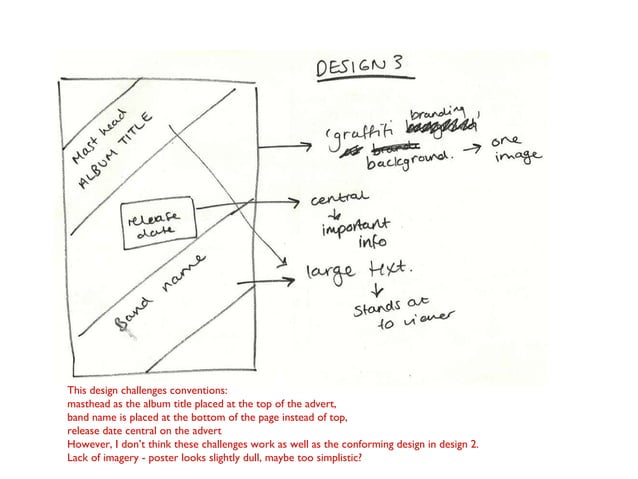 DESIGN 3
Mast head
ALBUM TITLE
release
date
Band name
'graffiti branding'
background. → one
image
central
important
info
large text.
Stands at
to viewer
This design challenges conventions:
masthead as the album title placed at the top of the advert,
band name is placed at the bottom of the page instead of top,
release date central on the advert
However, I don't think these challenges work as well as the conforming design in design 2.
Lack of imagery - poster looks slightly dull, maybe too simplistic?